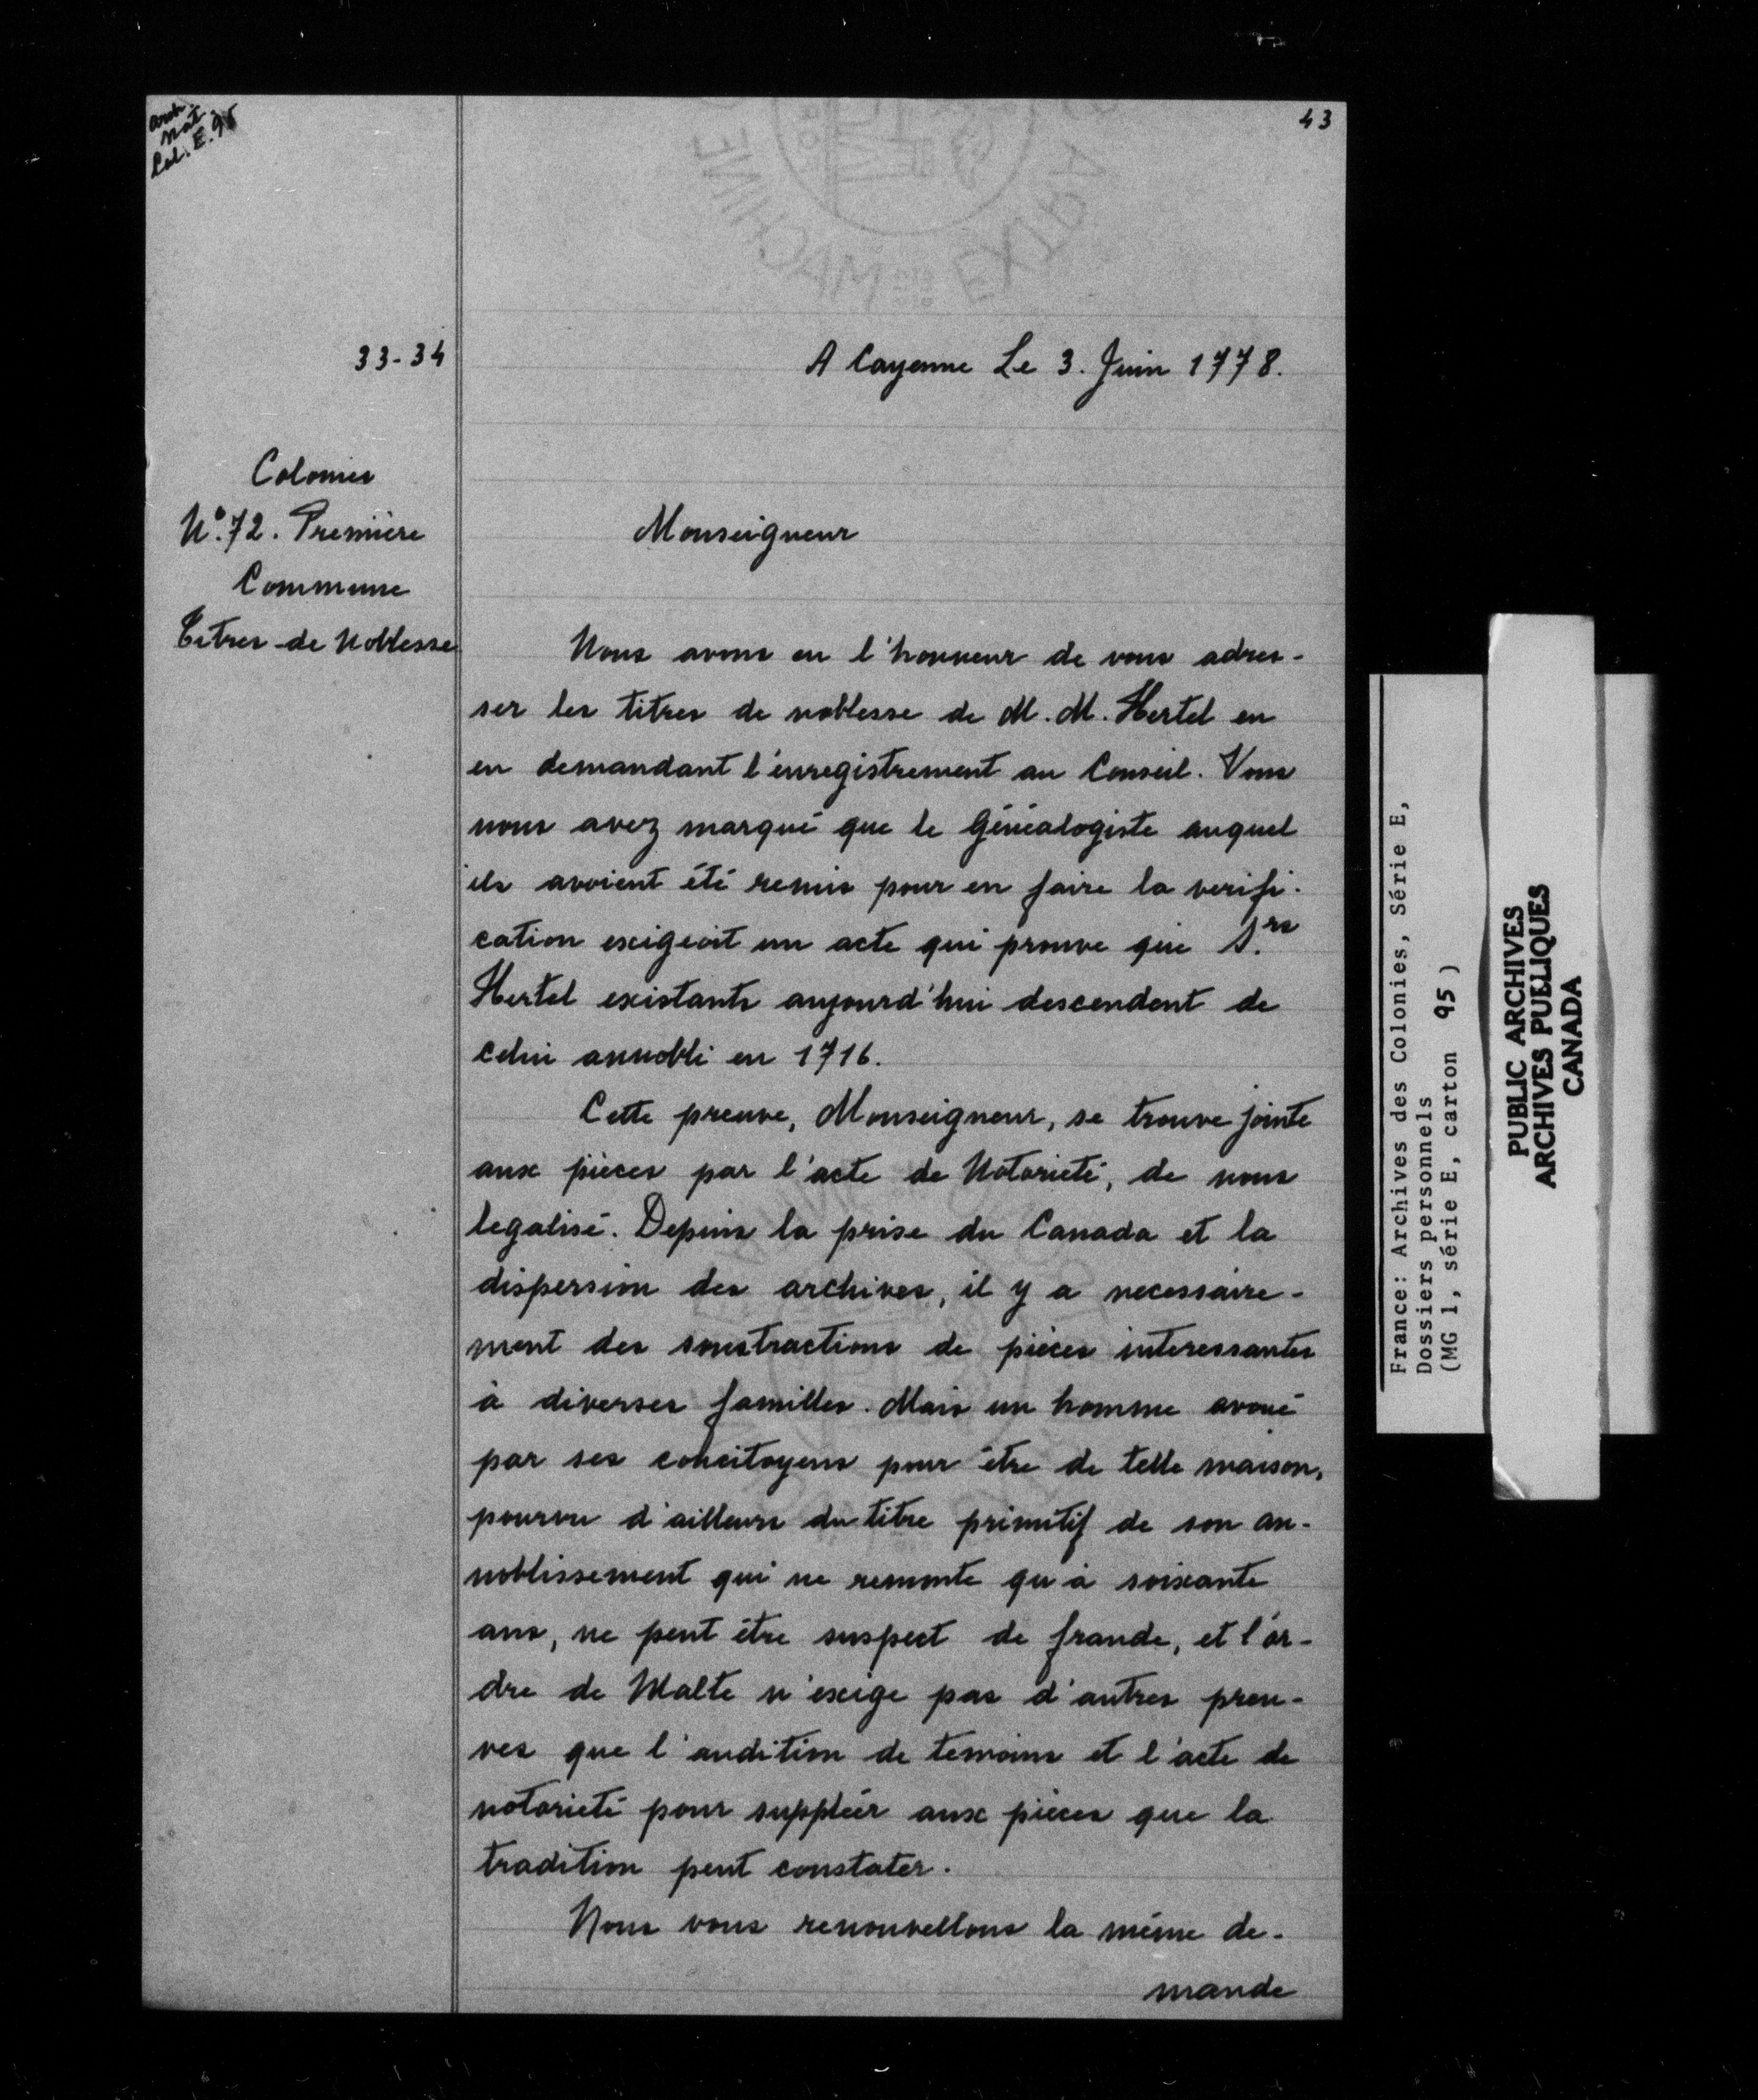 Arch.
Nat.
Col. E. 95
43
33-34
A Cayenne Le 3. Juin 1778.
Colonies
N°. 72. Première
Commune
Titres de Noblesse
Monseigneur
Nous avons eu l'honneur de vous adres-
ser les titres de noblesse de M. M. Hertel en
en demandant l'enregistrement au Conseil. Vous
nous avez marqué que le Généalogiste auquel
ils avoient été remis pour en faire la verifi-
cation exigeoit un acte qui prouve que S.rs
Hertel existants aujourd'hui descendent de
celui annobli en 1716.
Cette preuve, Monseigneur, se trouve jointe
aux pièces par l'acte de Notorieté, de nous
legalisé. Depuis la prise du Canada et la
dispersion des archives, il y a necessaire-
ment des soustractions de pièces interessantes
à diverses familles. Mais un homme avoué
par ses concitoyens pour être de telle maison,
pourvu d'ailleurs du titre primitif de son an-
noblissement qui ne remonte qu'à soixante
ans, ne peut être suspect de fraude, et l'or-
dre de Malte n'exige pas d'autres preu-
ves que l'audition de temoins et l'acte de
notorieté pour suppléer aux pièces que la
tradition peut constater.
Nous vous renouvellons la même de-
mande
France: Archives des Colonies, Série E,
Dossiers personnels
(MG 1, série E, carton 95)
PUBLIC ARCHIVES
ARCHIVES PUBLIQUES
CANADA